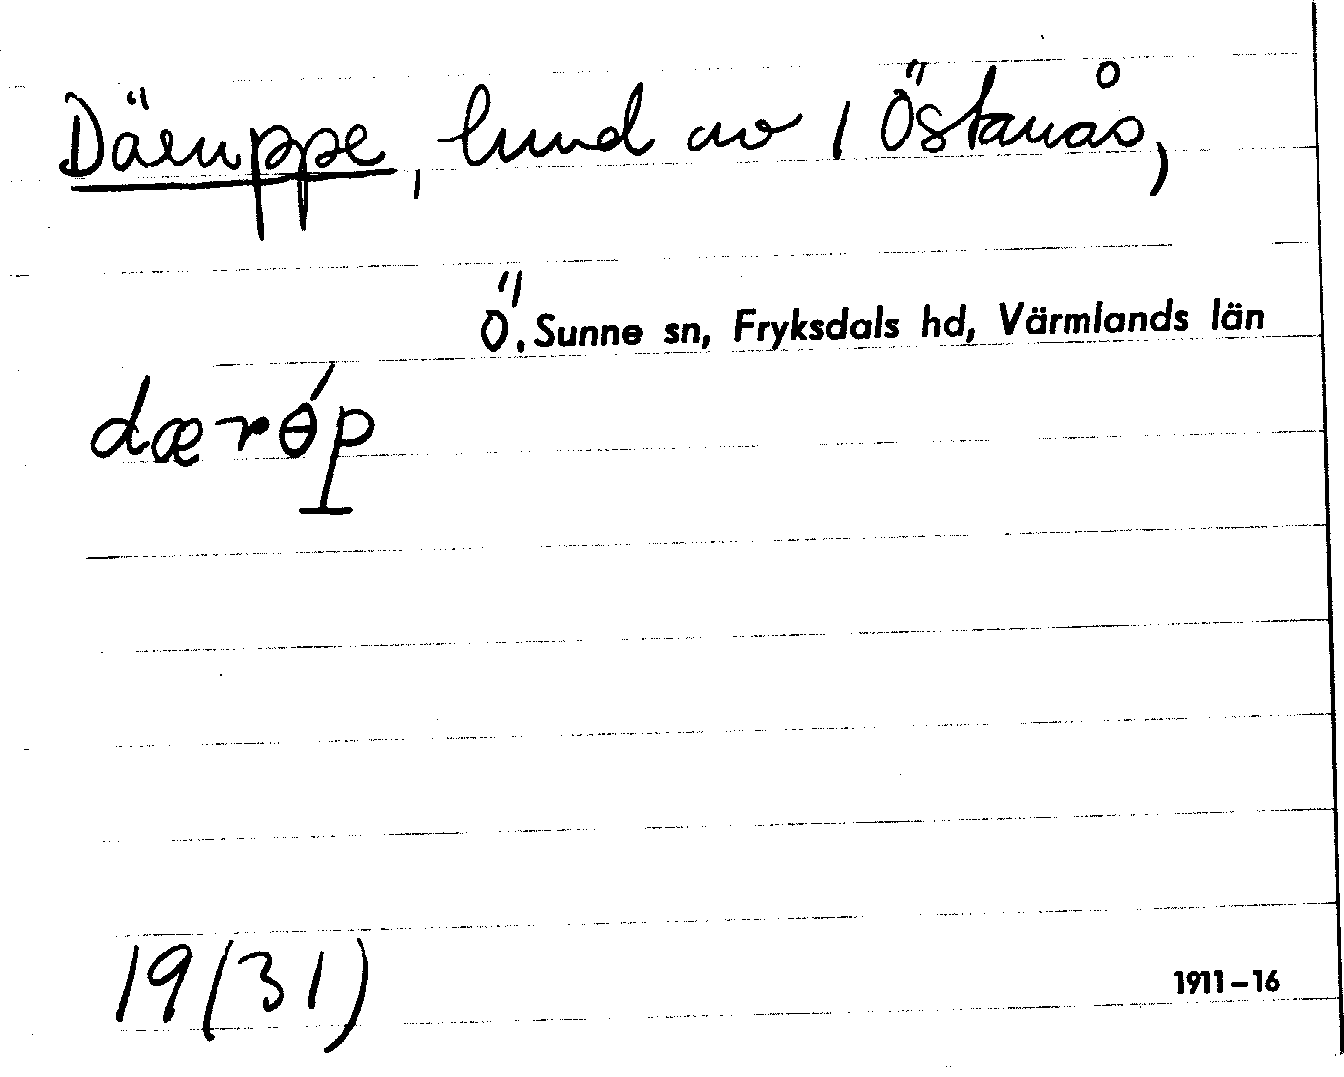 Däruppe, lund av 1 Östanås,
Ö. Sunne sn, Fryksdals hd, Värmlands län
dærɵ́p
19(31)
1911–16